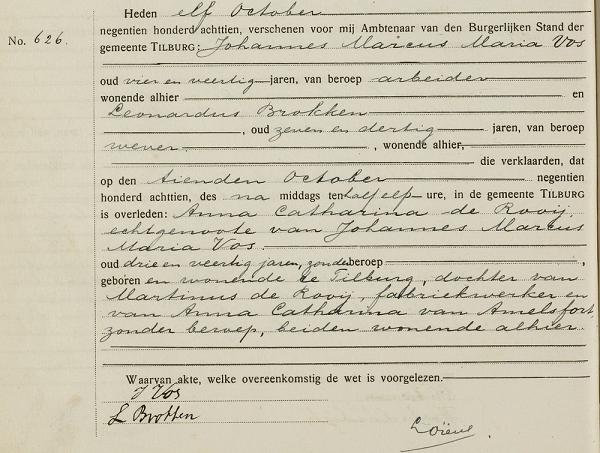 Heden elf October
No. 626.
negentien honderd achttien, verschenen voor mij Ambtenaar van den Burgerlijken Stand der
gemeente TILBURG: Johannes Marcus Maria Vos
oud vier en veertig jaren, van beroep arbeider
wonende alhier en
Leonardus Brokken
, oud zeven en dertig jaren, van beroep
wever , wonende alhier,
die verklaarden, dat
op den tienden October negentien
honderd achttien, des na middags ten half elf ure, in de gemeente TILBURG
is overleden: Anna Catharina de Rooij,
echtgenoote van Johannes Marcus
Maria Vos.
oud drie en veertig jaren, zonder beroep ,
geboren en wonende te Tilburg, dochter van
Martinus de Rooij, fabriekwerker en
van Anna Catharina van Amelsfort,
zonder beroep, beiden wonende alhier.
Waarvan akte, welke overeenkomstig de wet is voorgelezen.
J Vos
L Brokken